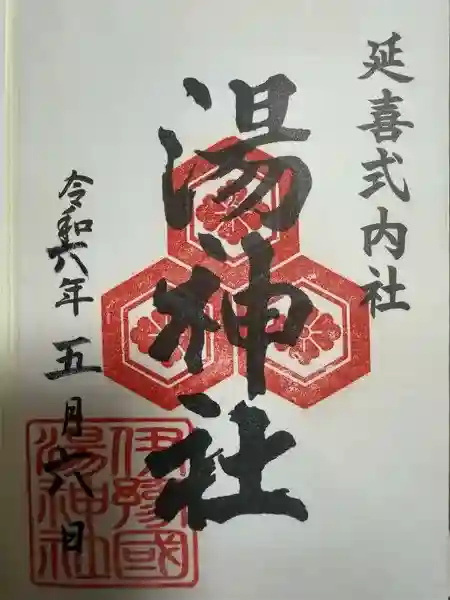 延喜式内社
湯神社
令和六年五月六日
伊豫國
湯神社